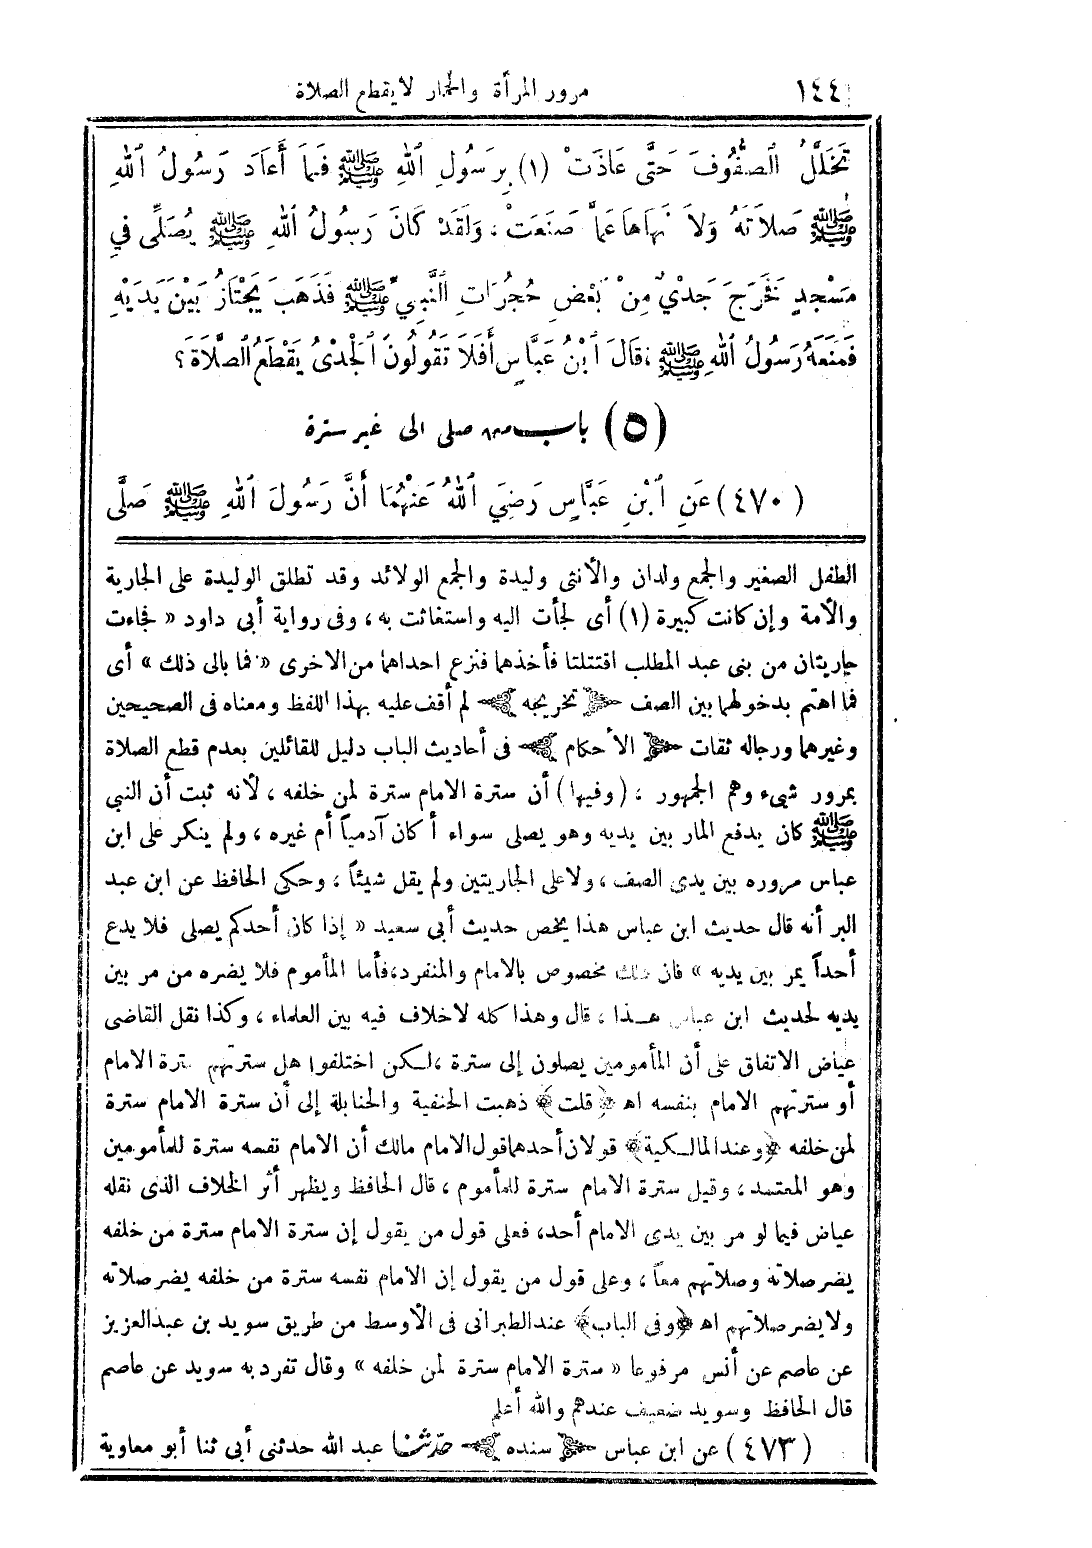 ١٤٤ مرور المرأة والحمار لا يقطع الصلاة
تَخَلَّلُ الصُّفُوفَ حَتَّى عَاذَتْ (١) بِرَسُولِ اللهِ ﷺ فَمَا أَعَادَ رَسُولُ اللهِ
ﷺ صَلاَتَهُ وَلاَ نَهَاهَا عَمَّا صَنَعَتْ، وَلَقَدْ كَانَ رَسُولُ اللهِ ﷺ يُصَلِّى فِي
مَسْجِدٍ فَخَرَجَ جَدْيٌ مِنْ بَعْضِ حُجُرَاتِ النَّبِيِّ ﷺ فَذَهَبَ يَجْتَازُ بَيْنَ يَدَيْهِ
فَمَنَعَهُ رَسُولُ اللهِ ﷺ، قَالَ ابْنُ عَبَّاسٍ أَفَلاَ تَقُولُونَ الْجَدْىُ يَقْطَعُ الصَّلاَةَ؟
(٥) باب من صلى الى غير سترة
(٤٧٠) عَنِ ابْنِ عَبَّاسٍ رَضِيَ اللهُ عَنْهُمَا أَنَّ رَسُولَ اللهِ ﷺ صَلَّى
الطفل الصغير والجمع ولدان والأنثى وليدة والجمع الولائد وقد تطلق الوليدة على الجارية
والأمة وإن كانت كبيرة (١) أى لجأت اليه واستغاثت به، وفى رواية أبى داود « فجاءت
جاريتان من بنى عبد المطلب اقتتلتا فأخذهما فنزع احداهما من الاخرى « فما بالى ذلك » أى
فما اهتم بدخولهما بين الصف ﴿ تخريجه ﴾ لم أقف عليه بهذا اللفظ ومعناه فى الصحيحين
وغيرهما ورجاله ثقات ﴿ الأحكام ﴾ فى أحاديث الباب دليل للقائلين بعدم قطع الصلاة
بمرور شىء وهم الجمهور، (وفيها) أن سترة الامام سترة لمن خلفه، لأنه ثبت أن النبي
ﷺ كان يدفع المار بين يديه وهو يصلى سواء أكان آدمياً أم غيره، ولم ينكر على ابن
عباس مروره بين يدى الصف، ولا على الجاريتين ولم يقل شيئاً، وحكى الحافظ عن ابن عبد
البر أنه قال حديث ابن عباس هذا يخص حديث أبى سعيد « إذا كان أحدكم يصلى فلا يدع
أحداً يمر بين يديه » فان ذلك مخصوص بالامام والمنفرد، فأما المأموم فلا يضره من مر بين
يديه لحديث ابن عباس هـذا، قال وهذا كله لاخلاف فيه بين العلماء، وكذا نقل القاضى
عياض الاتفاق على أن المأمومين يصلون إلى سترة، لـكن اختلفوا هل سترتهم سترة الامام
أو سترتهم الامام بنفسه اهـ ﴿قلت﴾ ذهبت الحنفية والحنابلة إلى أن سترة الامام سترة
لمن خلفه ﴿وعند المالـكية﴾ قولان أحدهما قول الامام مالك أن الامام نفسه سترة للمأمومين
وهو المعتمد، وقيل سترة الامام سترة للمأموم، قال الحافظ ويظهر أثر الخلاف الذى نقله
عياض فيما لو مر بين يدى الامام أحد، فعلى قول من يقول إن سترة الامام سترة من خلفه
يضر صلاته وصلاتهم معاً، وعلى قول من يقول إن الامام نفسه سترة من خلفه يضر صلاته
ولا يضر صلاتهم اهـ ﴿وفى الباب﴾ عند الطبرانى فى الأوسط من طريق سويد بن عبدالعزيز
عن عاصم عن أنس مرفوعا « سترة الامام سترة لمن خلفه » وقال تفرد به سويد عن عاصم
قال الحافظ وسويد ضعيف عندهم والله أعلم
(٤٧٣) عن ابن عباس ﴿ سنده ﴾ حدّثنا عبد الله حدثنى أبى ثنا أبو معاوية